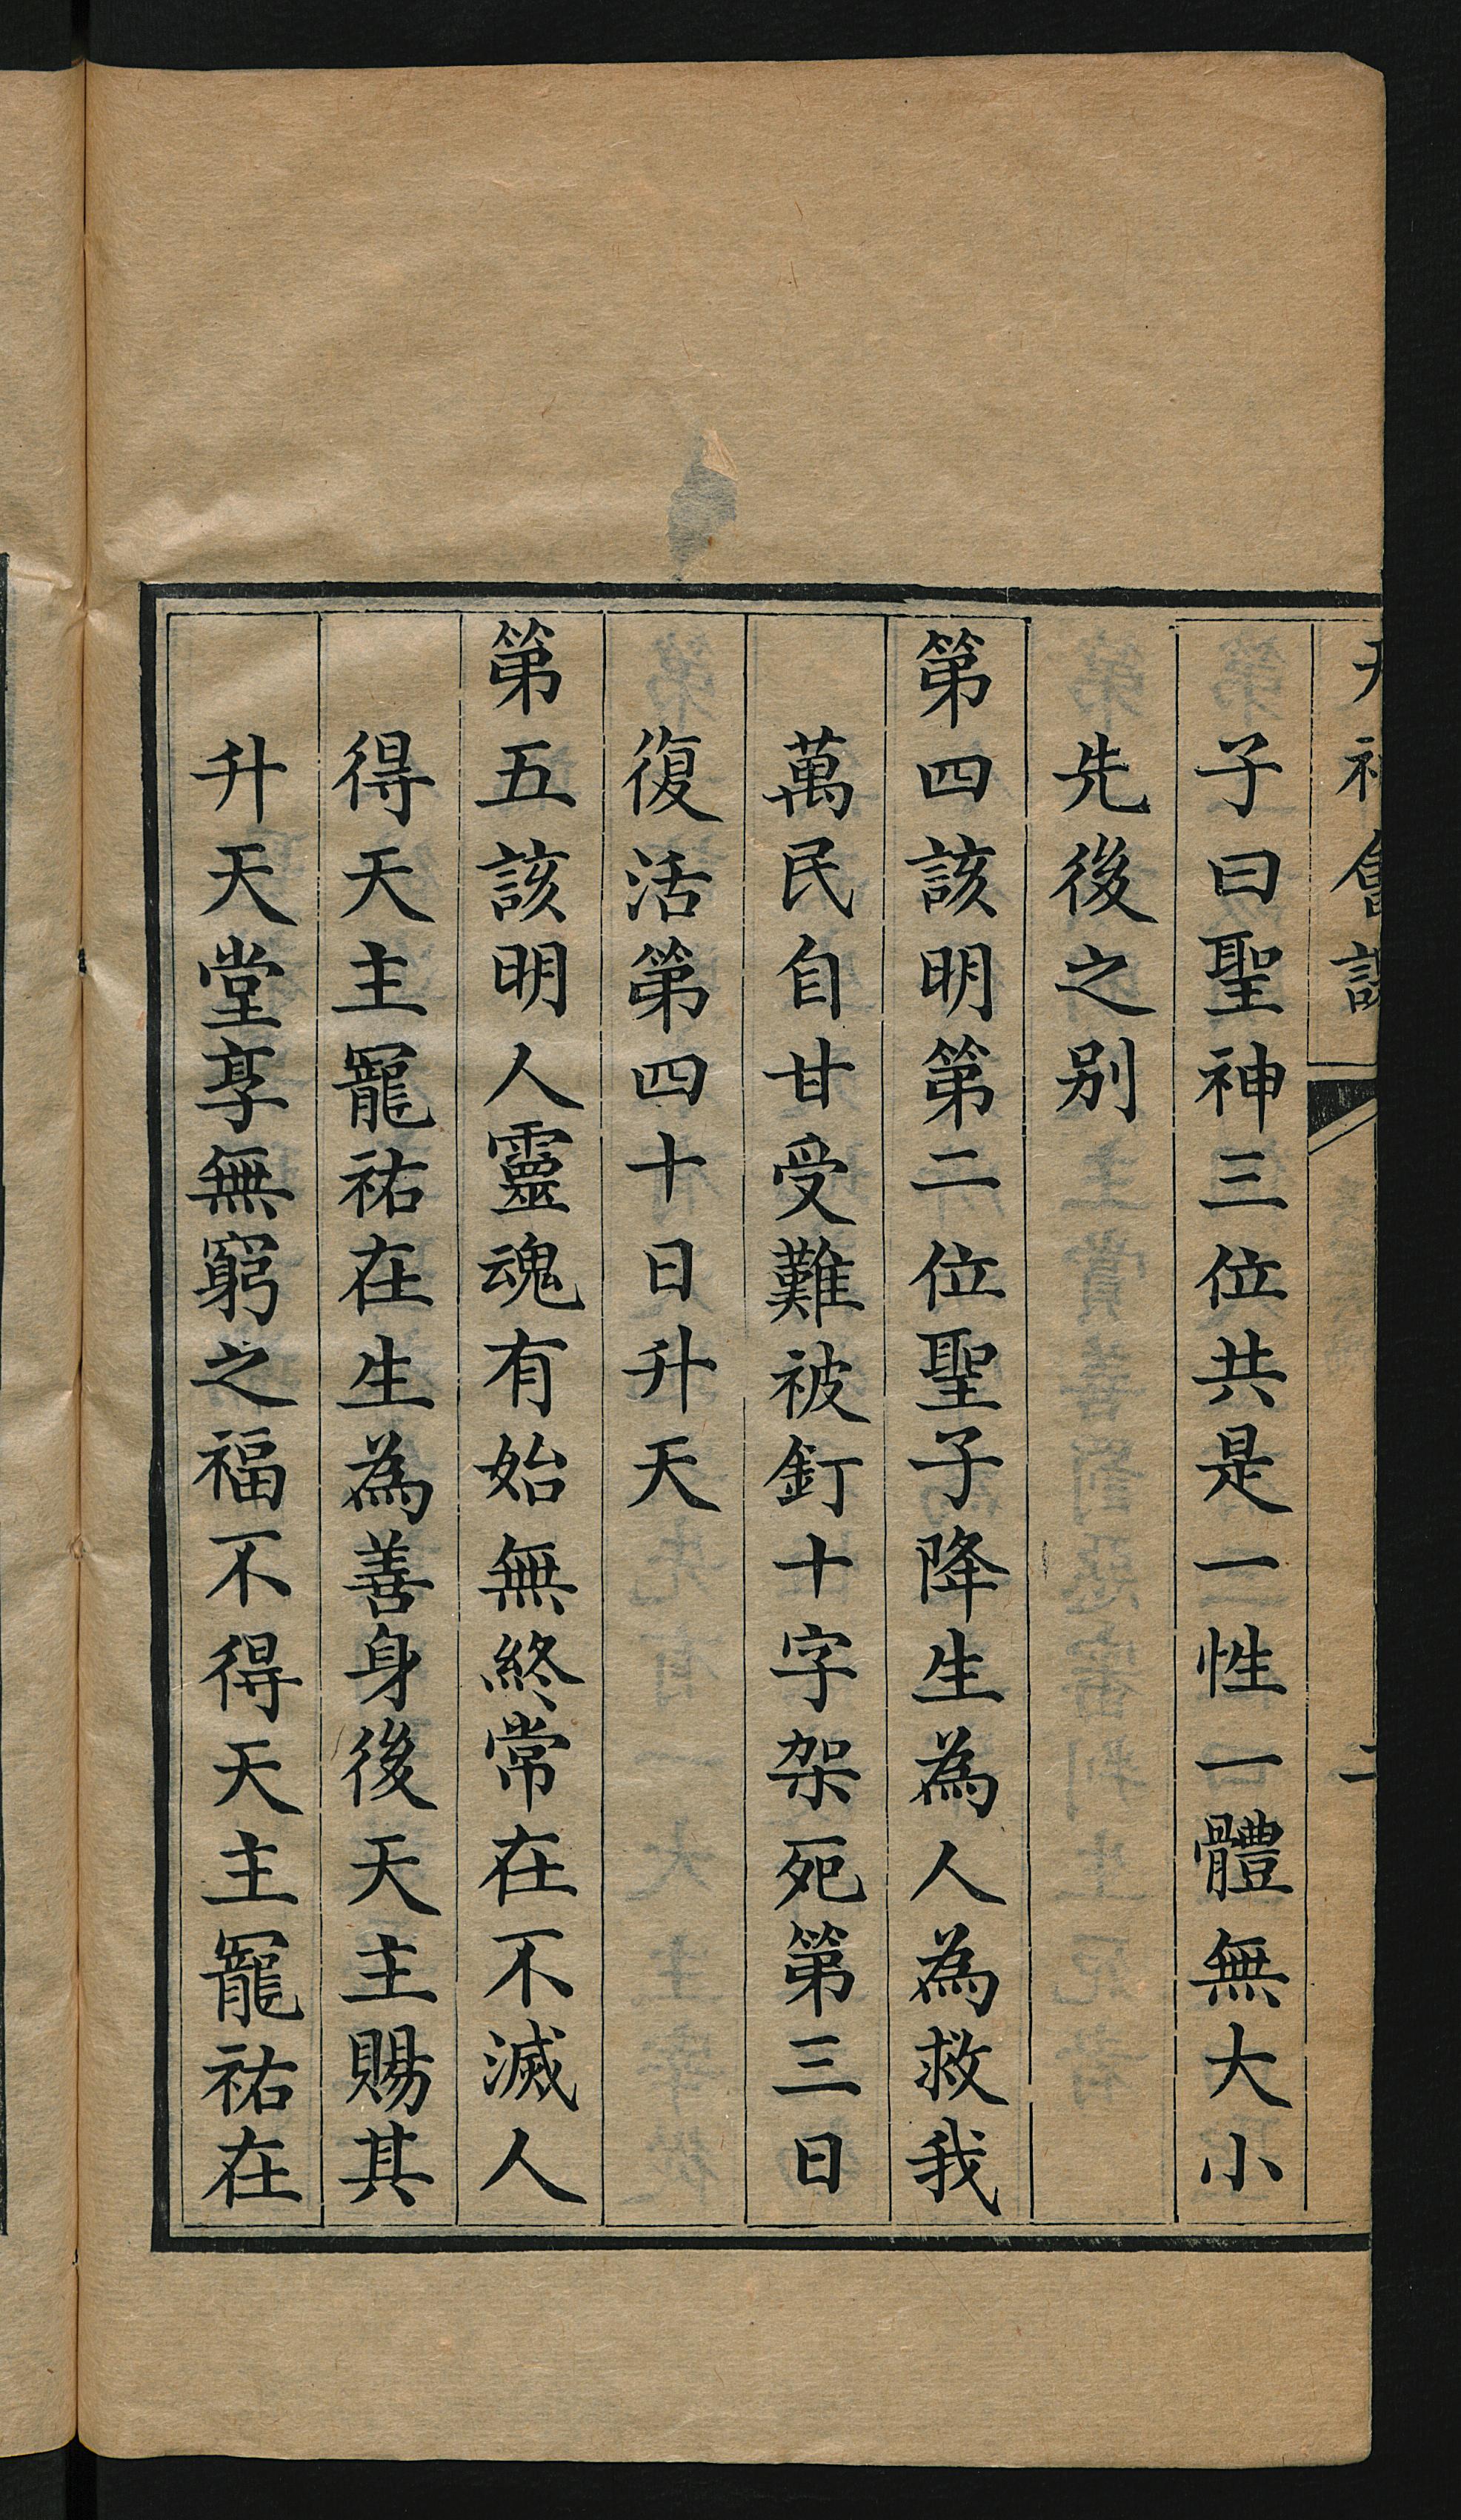 天神會課
二
子曰聖神三位共是一性一體無大小
先後之别
第四該明第二位聖子降生為人為救我
萬民自甘受難被釘十字架死第三日
復活第四十日升天
第五該明人靈魂有始無終常在不滅人
得天主寵祐在生為善身後天主賜其
升天堂享無窮之福不得天主寵祐在